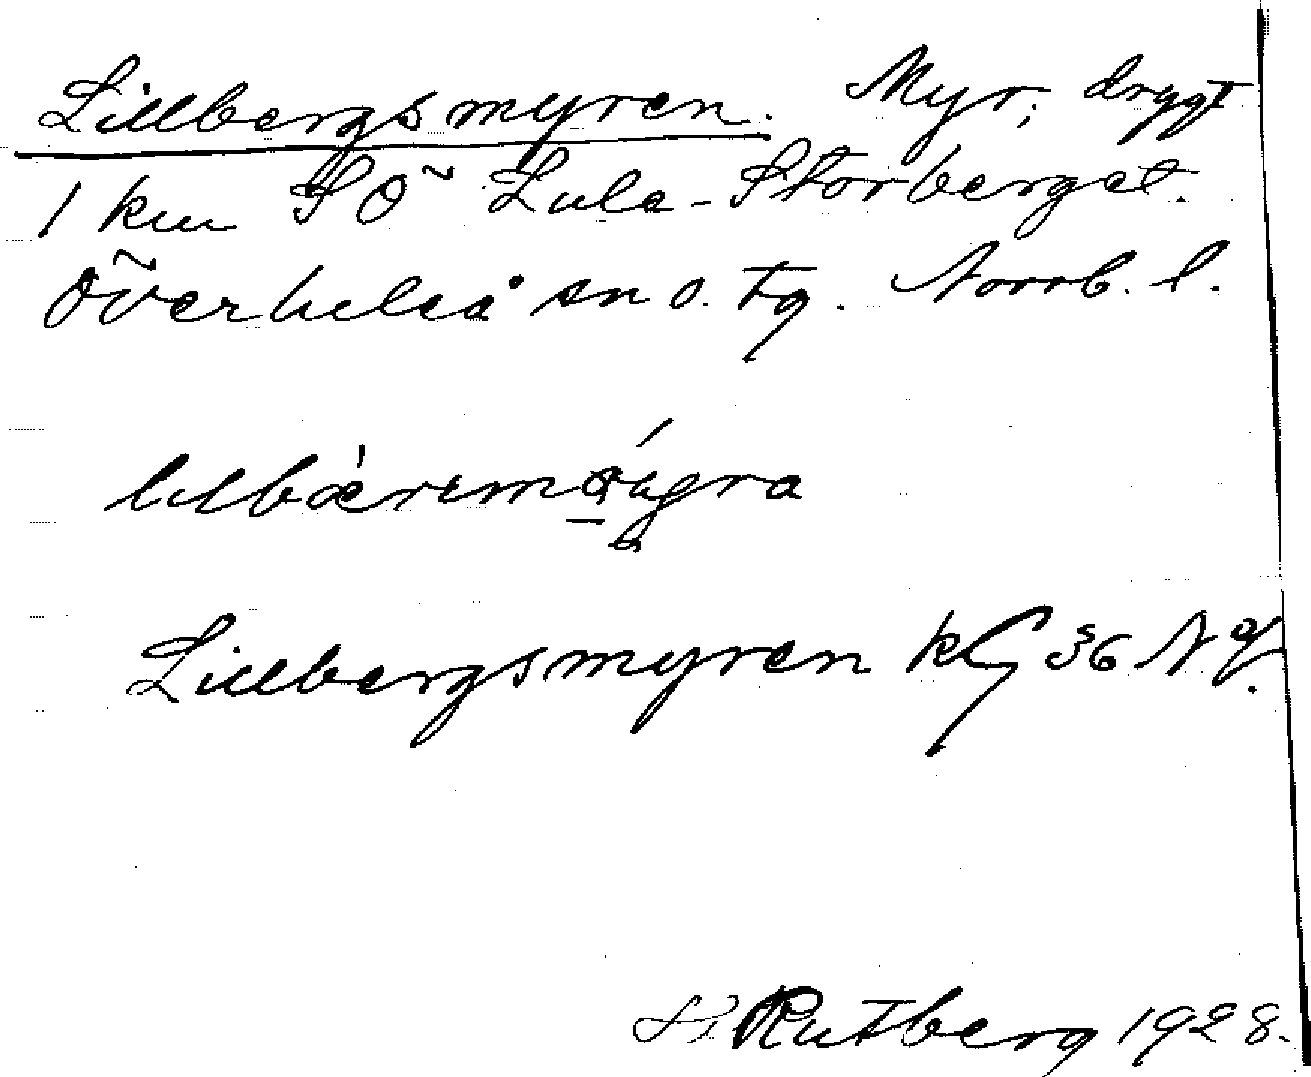 Lillbergsmyren. Myr, drygt
1 km SÖ Lula-Storberget.
Överluleå sn o. tg. Norrb. l.
Lillbergsmyren kG 36 NO.
H. Rutberg 1928.